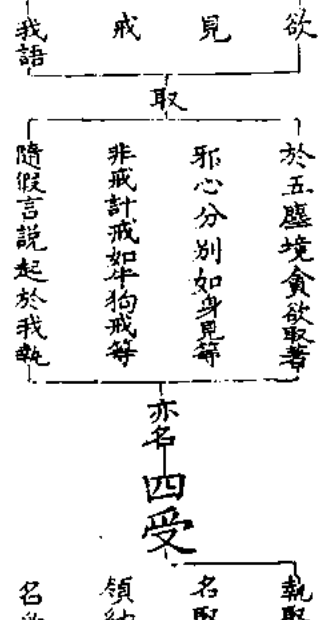 欲
見
戒
我語
取
於五塵境貪欲取著
邪心分別如身見等
非戒計戒如牛狗戒等
隨假言說起於我執
亦名
四受
執取
名取
領納
名受